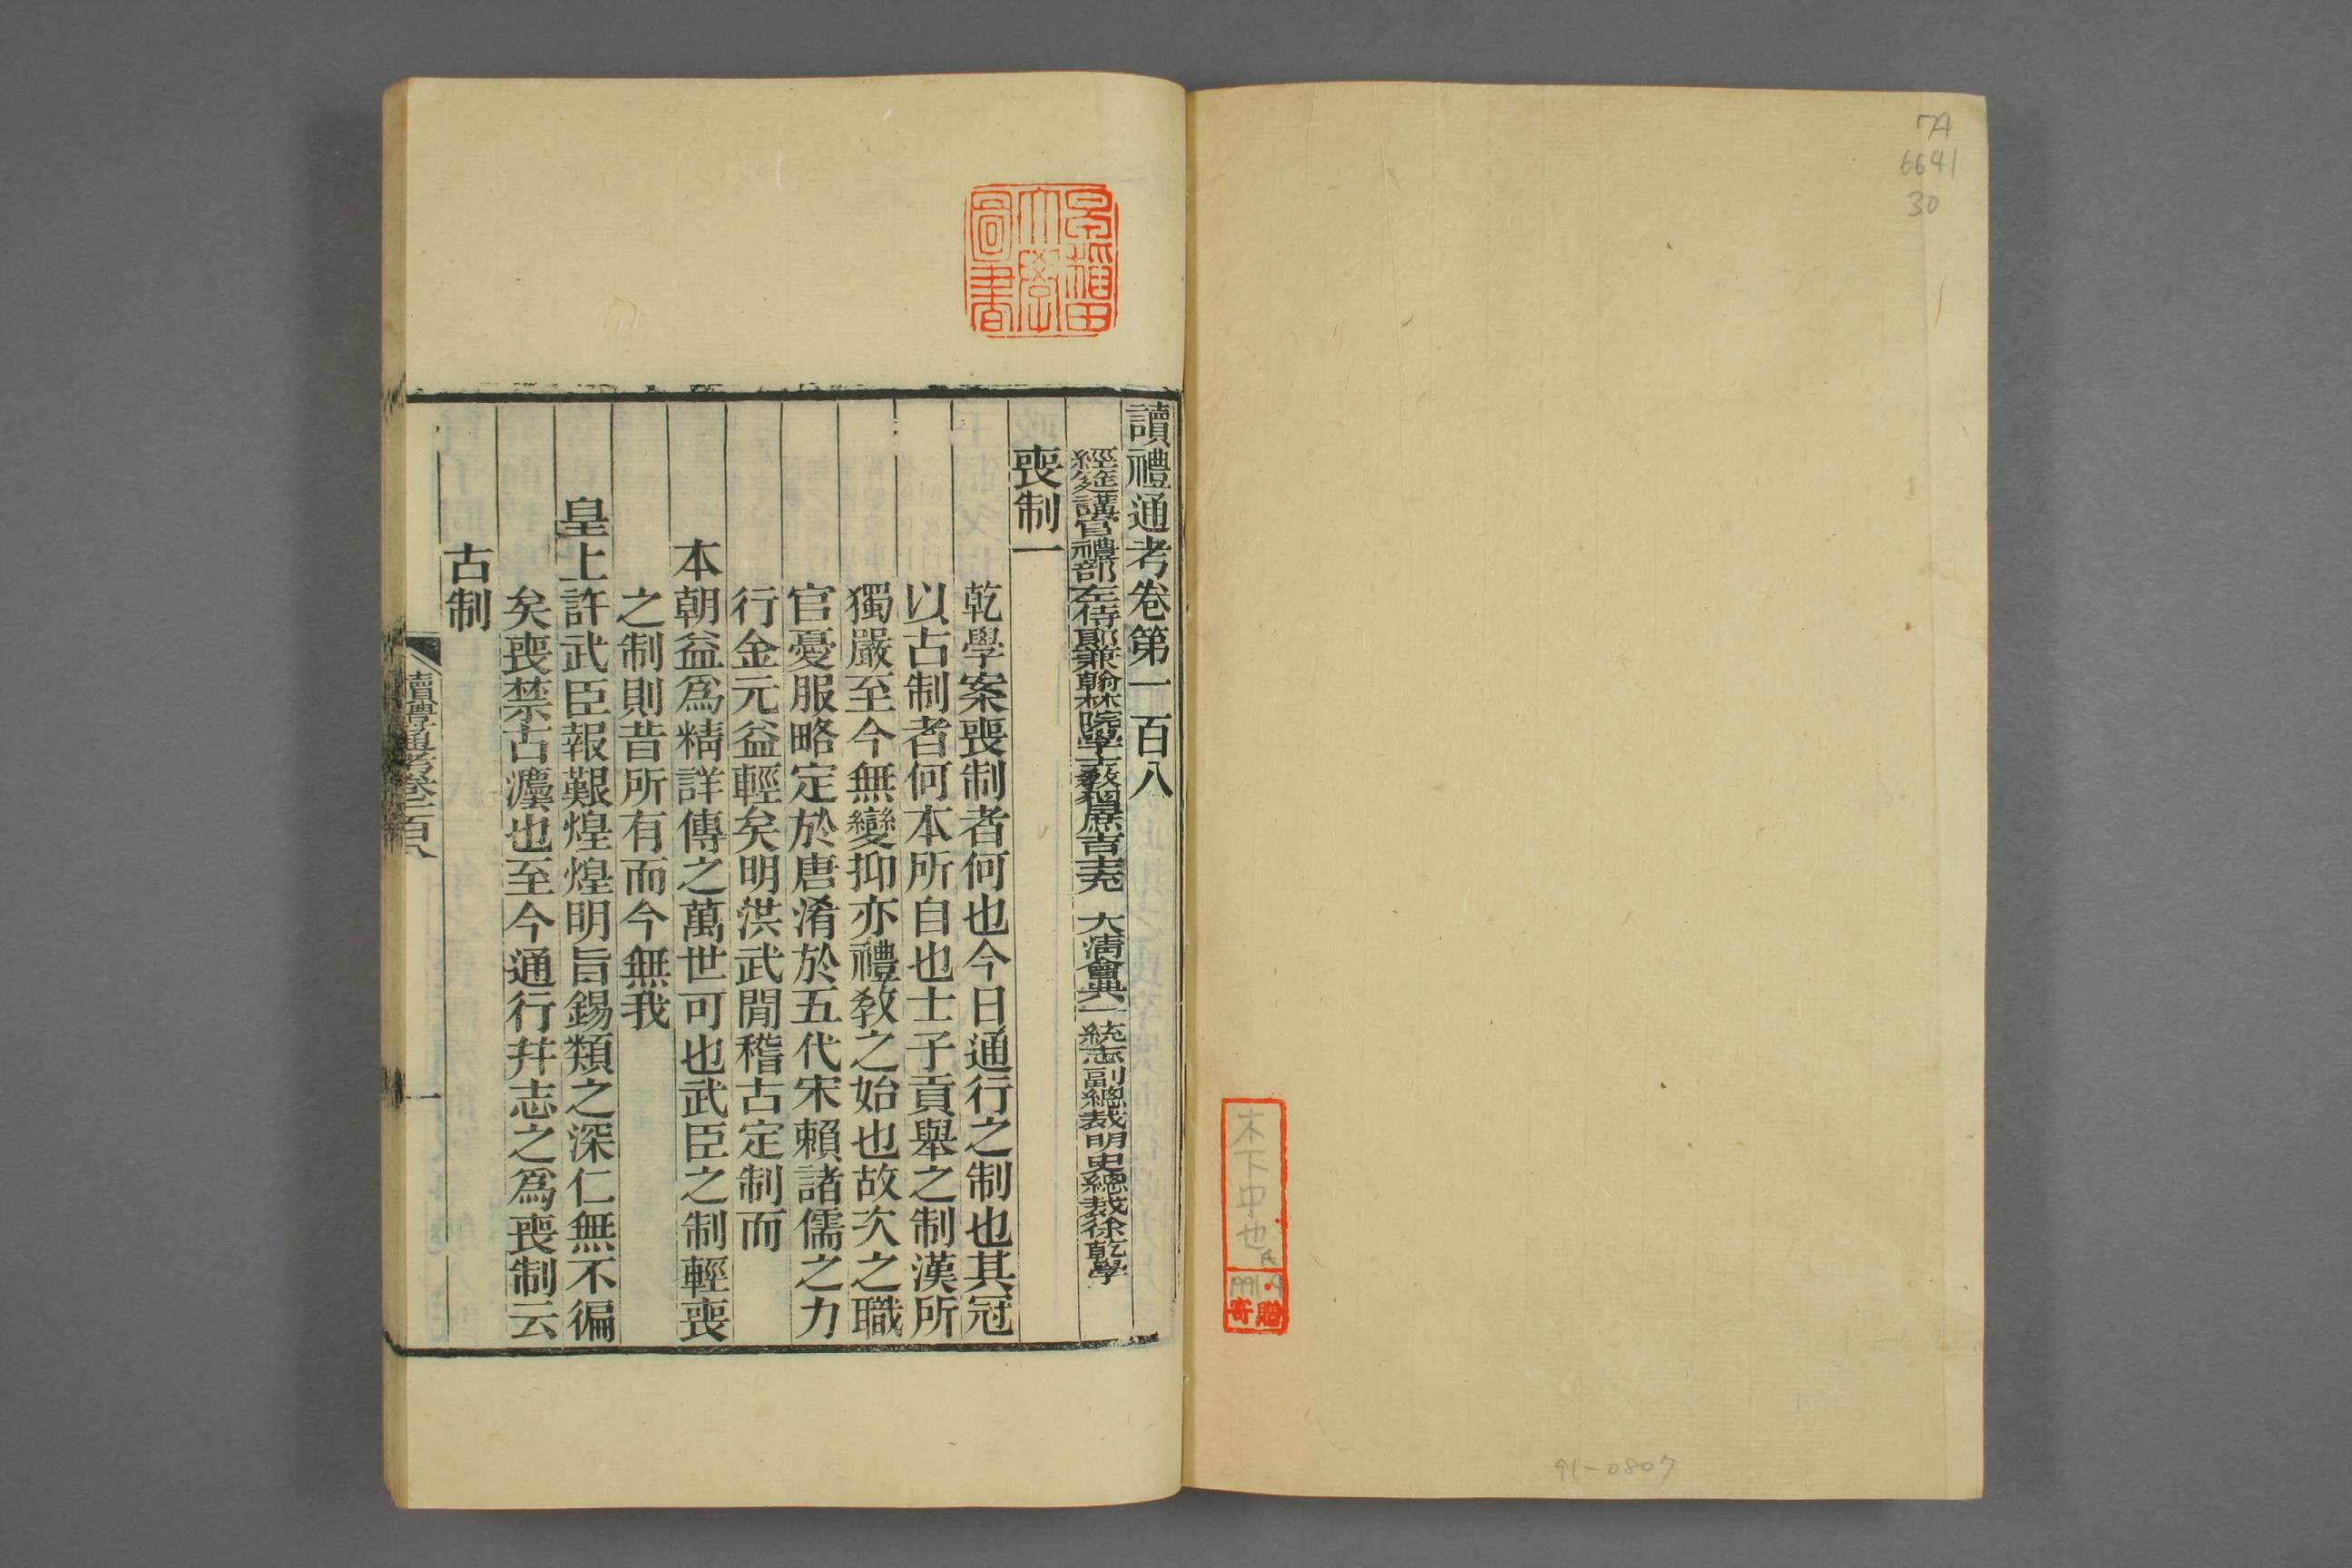 7A
6641
30
木下中也氏
1991.9
寄贈
91-0807
早稲田大學圖書
讀禮通考卷第一百八
經筵講官禮部左侍郎兼翰林院學士教習庶吉士充　大淸會典一統志副總裁明史總裁徐乾學
喪制一
乾學案喪制者何也今日通行之制也其冠
以古制者何本所自也士子貢舉之制漢所
獨嚴至今無變抑亦禮教之始也故次之職
官憂服略定於唐淆於五代宋賴諸儒之力
行金元益輕矣明洪武閒稽古定制而
本朝益爲精詳傳之萬世可也武臣之制輕喪
之制則昔所有而今無我
皇上許武臣報艱煌煌明旨錫類之深仁無不徧
矣喪禁古灋也至今通行幷志之爲喪制云
古制
讀禮通考卷一百八
一